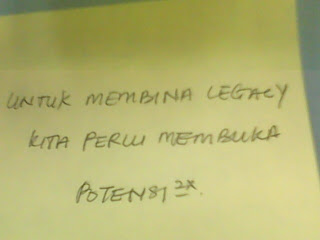 UNTUK MEMBINA LEGACY
KITA PERLU MEMBUKA
POTENSI 2x.